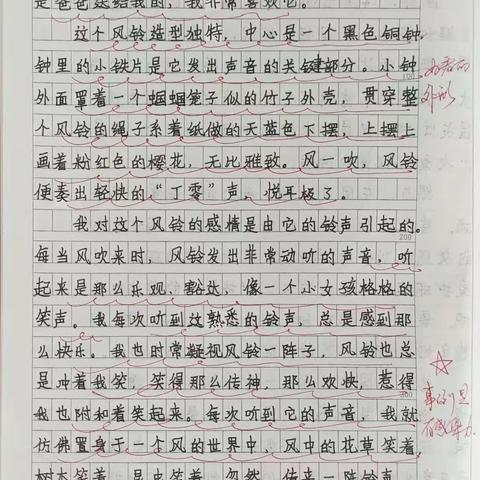 是爸爸送给我的，我非常喜欢它。
这个风铃造型独特，中心是一个黑色铜钟，
钟里的小铁片是它发出声音的关键部分。小钟
100
外面罩着一个蝈蝈笼子似的竹子外壳，贯穿整
个风铃的绳子系着纸做的天蓝色下摆，上摆上
画着粉红色的樱花，无比雅致。风一吹，风铃
便奏出轻快的“丁零”声，悦耳极了。
我对这个风铃的感情是由它的铃声引起的。
200
每当风吹来时，风铃发出非常动听的声音，听
起来是那么乐观、豁达，像一个小女孩格格的
笑声。我每次听到这熟悉的铃声，总是感到那
么快乐。我也时常凝视风铃一阵子，风铃也总
是冲着我笑，笑得那么传神，那么欢快，惹得
300
我也附和着笑起来。每次听到它的声音，我就
仿佛置身于一个风的世界中，风中的花草笑着，
树木笑着，昆虫笑着，忽然，传来一阵铃声，
外形